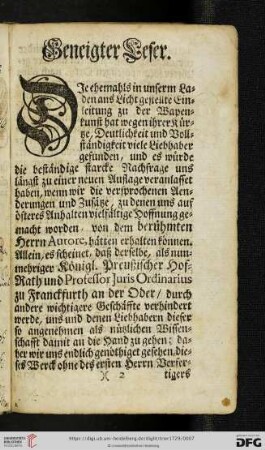 Geneigter Leser.
DIe ehemahls in unserm La-
den ans Licht gestellte Ein-
leitung zu der Wapen-
kunst hat wegen ihrer Kür-
tze, Deutlichkeit und Voll-
ständigkeit viele Liebhaber
gefunden, und es würde
die beständige starcke Nachfrage uns
längst zu einer neuen Auflage veranlasset
haben, wenn wir die versprochenen Aen-
derungen und Zusätze, zu denen uns auf
öfteres Anhalten vielfältige Hoffnung ge-
macht worden, von dem berühmten
Herrn Autore, hätten erhalten können.
Allein, es scheinet, daß derselbe, als nun-
mehriger Königl. Preußischer Hof-
Rath und Professor Juris Ordinarius
zu Franckfurth an der Oder/ durch
andere wichtigere Geschäffte verhindert
werde, uns und denen Liebhabern dieser
so angenehmen als nützlichen Wissen-
schafft damit an die Hand zu gehen; da-
her wir uns endlich genöthiget gesehen, die-
ses Werck ohne des ersten Herrn Verfer-
)( 2 tigers
UNIVERSITÄTS-
BIBLIOTHEK
HEIDELBERG
https://digi.ub.uni-heidelberg.de/diglit/trier1729/0007
© Universitätsbibliothek Heidelberg
gefördert durch die
DFG